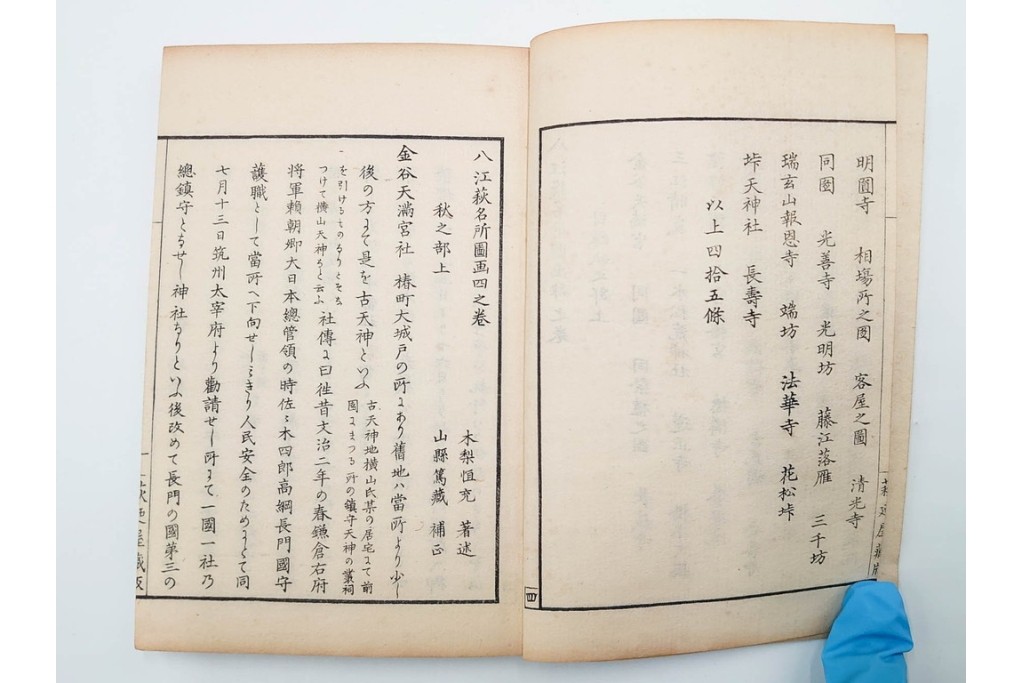 明圓寺 相場所之圖 客屋之圖 清光寺
同圖 光善寺 光明坊 藤江落雁 三千坊
瑞玄山報恩寺 端坊 法華寺 花松垰
垰天神社 長壽寺
以上四拾五條
四
八江萩名所圖画四之巻
秋之部上
木梨恒充 著述
山縣篤藏 補正
金谷天満宮社 椿町大城戸の所にあり舊地ハ當所より少し
後の方にて是を古天神といふ 古天神地横山氏某の居宅にて前
園にまつる所の鎮守天神の叢祠
を引けるものなりとそ
つけて横山天神ると云ふ 社傳に曰徃昔文治二年の春鎌倉右府
将軍頼朝卿大日本總管領の時佐〻木四郎高綱長門國守
護職として當所へ下向せしミきり人民安全のためとて同
七月十三日筑州太宰府より勸請せし所にて一國一社乃
總鎮守となせし神社なりといふ後改めて長門の國第三の